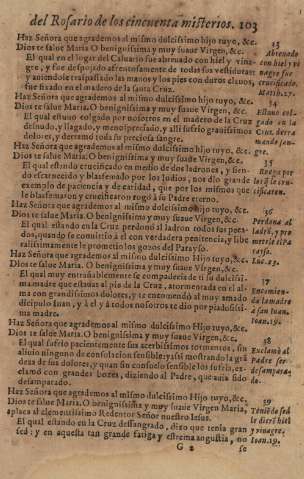 del Rosario de los cincuenta misterios. 103
Haz Señora que agrademos al mismo dulcissimo hijo tuyo, &c.
Dios te salue Maria. O benignissima y muy suaue Virgen, &c.
El qual en el lugar del Caluario fue abreuado con hiel y vina-
gre, y fue despojado afrentosamente de todas sus vestiduras
y aniendole traspassado las manos y los pies con duros clauos,
fue fixado en el madero de la santa Cruz.
Haz Señora que agrademos al mismo dulcissimo hijo tuyo, &c.
Dios te salue Maria. O benignissima y muy suaue Virgen, &c.
El qual estuuo colgado por nosotros en el madero de la Cruz
desnudo, y llagado, y menospreciado, y alli sufrio grauissimos
dolores, y derramó toda su preciosa sangre.
Haz Señora que agrademos al mismo dulcissimo hijo tuyo, &c.
Dios te salue Maria. O benignissima y muy suaue Virgen, &c.
El qual estando crucificado en medio de dos ladrones, y sien-
do escarnecido y blasfemado por los Iudios, nos dio grande
exemplo de paciencia y de caridad, que por los mismos que
le blasfemauan y crucificaron rogó a su Padre eterno.
Haz Señora que agrademos al mismo dulcissimo hijo tuyo, &c.
Dios te salue Maria. O benignissima y muy suaue Virgen, &c.
El qual estando en la Cruz perdonó al ladron todos sus peca-
dos, quando se conuirtio à el con verdadera penitencia, y libe
ralissimamente le prometio los gozos del Parayso.
Haz Señora que agrademos al mismo dulcissimo Hijo tuyo, &c.
Dios te salue Maria. O benignissima y muy suaue Virgen, &c.
El qual muy entrañablemente se compadecio de ti su dulcissi-
ma madre que estauas al pie de la Cruz, atormentada en el al-
ma con grandissimos dolores, y te encomendó al muy amado
dicipulo Iuan, y à el y à todos nosotros te dio por piadosissi-
ma madre.
Haz Señora que agrademos al mismo dulcissimo Hijo tuyo, &c.
Dios te salue Maria. O benignissima y muy suaue Virgen, &c.
El qual sufrio pacientemente sus acerbissimos tormentos, sin
aliuio ninguno de consolacion sensible: y assi mostrando la grã
deza de sus dolores, y quan sin consuelo sensible los sufria, ex-
clamó con grandes bozes, diziendo al Padre, que auia sido
desamparado.
Haz Señora que agrademos al mismo dulcissimo hijo tuyo, &c.
Dios te salue Maria. O benignissima y muy suaue Virgen Maria,
aplaca al clementissimo Redentor Señor nuestro Iesus.
El qual estando en la Cruz dessangrado, dixo que tenia gran
sed: y en aquesta tan grande fatiga y estrema angustia, no
G 2 se
33
Abreuado
con hiel y vi
nagre fue
crucificado.
Matth. 27.
34
Estuuo col
gado en la
Cruz, derra
mando san-
gre.
35
Ruega por
los que le cru
cificaron.
36
Perdona al
ladrõ, y pro
metele el Pa
rayso.
Luc. 23.
37
Encomien
da la madre
à san Iuan.
Ioan. 19.
38
Exclamò al
Padre ser
desampara-
do.
39
Teniẽdo sed
le dierõ hiel
y vinagre.
Ioan. 19.